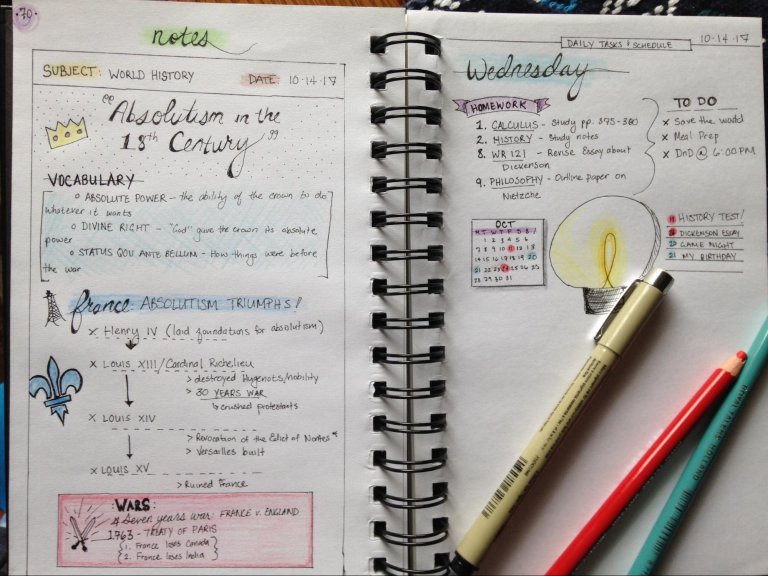 70
notes
SUBJECT: WORLD HISTORY
DATE: 10·14·17
"Absolutism in the
18th Century"
VOCABULARY
o ABSOLUTE POWER - the ability of the crown to do
whatever it wants
o DIVINE RIGHT - "God" gave the crown its absolute
power
o STATUS QOU ANTE BELLUM - How things were before
the war
france ABSOLUTISM TRIUMPHS!
x Henry IV (laid foundations for absolutism)
x LOUIS XIII/Cardinal Richelieu
> destroyed Hugenots/nobility
> 30 YEARS WAR
↳ crushed protestants
x LOUIS XIV
> Revocation of the Edict of Nantes*
> Versailles built
x LOUIS XV
> Ruined France
WARS:
Seven years war: FRANCE V. ENGLAND
1763 - TREATY OF PARIS
1. France loses Canada
2. France loses India
DAILY TASKS & SCHEDULE
10·14·17
Wednesday
HOMEWORK
1. CALCULUS - Study pp. 375-380
2. HISTORY - Study notes
8. WR 121 - Revise Essay about
Dickenson
9. PHILOSOPHY - Outline paper on
Nietzche
TO DO
x Save the world
x Meal Prep
x DnD @ 6:00 PM
OCT
M T W T F S S
1 2 3 4 5 6
7 8 9 10 11 12 13
14 15 16 17 18 19 20
21 22 23 24 25 26 27
28 29 30 31
HISTORY TEST!
DICKENSON ESSAY
20 GAME NIGHT
21 MY BIRTHDAY